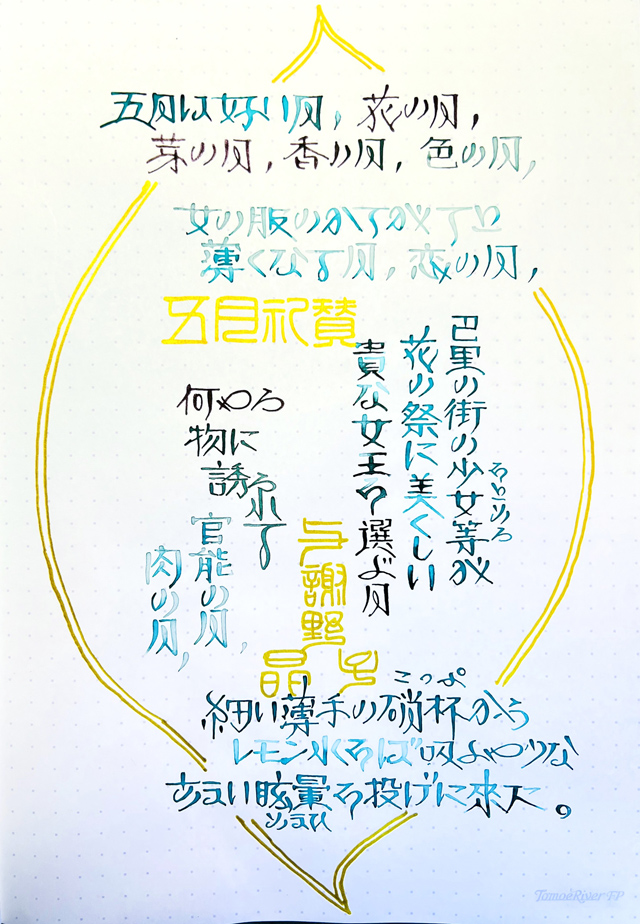 五月は好い月，花の月，
芽の月，香の月，色の月，
女の服のかるがると
薄くなる月，恋の月，
五月礼賛
巴里の街の少女等が
をとめら
花の祭に美くしい
貴な女王を選ぶ月
与謝野
晶子
何やら
物に
誘はれる
官能の月，
肉の月，
こっぷ
細い薄手の硝杯から
レモン水をば吸ふやうな
あまい眩暈を投げに來た。
めまひ
TomoeRiver FP